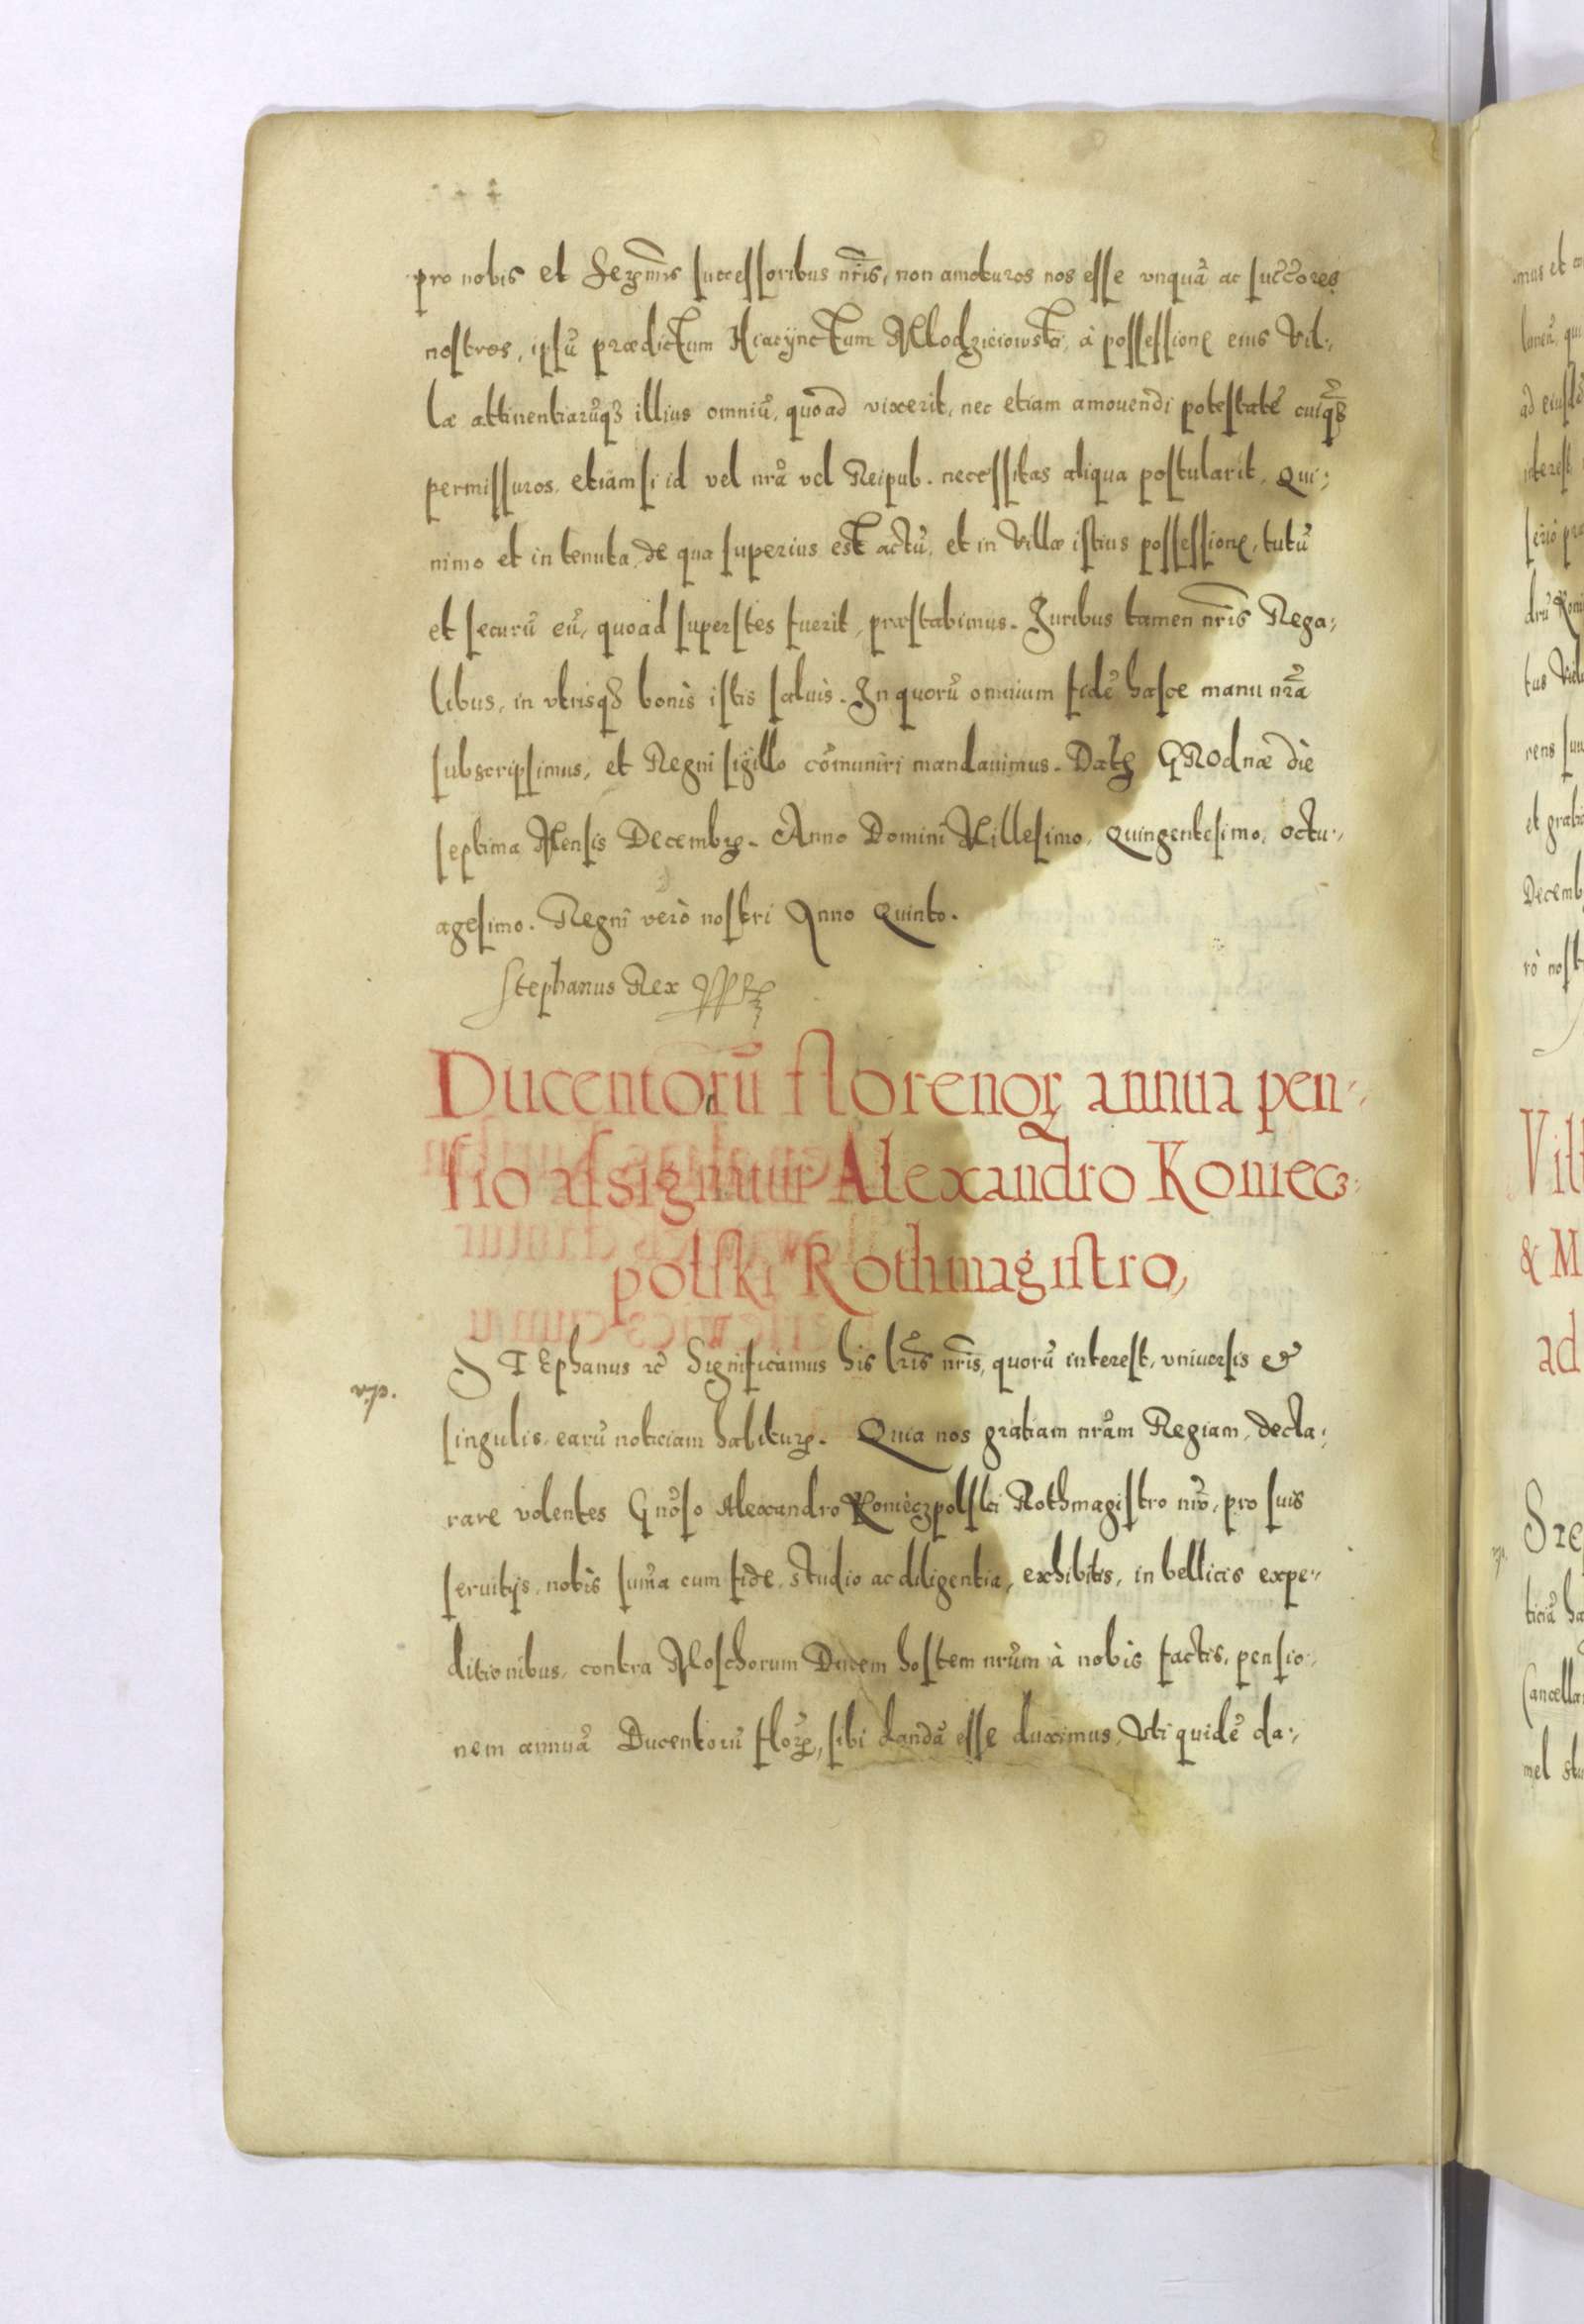 pro nobis et Serꝫmis successoribus nr̃is, non amoturos nos esse vnquã ac succ̃ores
nostros, ipsũ prædictum Hiacÿnctum Mlodzieiowski, à possessione eius Vil:,
læ attinentiarũqꝫ illius omniũ, quoad vixerit, nec etiam amouendi potestatẽ cuiqꝫ
permissuros, etiamsi id vel nrã vel Reipub. necessitas aliqua postularit, Qui:,
nimo et in tenuta, de qua superius est actũ, et in Villæ istius possessione, tutũ
et securũ eũ, quoad superstes fuerit, præstabimus. Iuribus tamen nr̃is Rega:,
libus, in vtrisqꝫ bonis istis saluis. In quorũ omnium fidẽ hasce manu nr̃a
subscripsimus, et Regni sigillo cõmuniri mandauimus. Datꝫ GROdnæ die
septima Mensis Decembrꝫ. Anno Domini Millesimo, Quingentesimo, octu:,
agesimo. Regni verò nostri Anno Quinto.
Stephanus Rex
Ducentorũ florenoꝝ annua pen:,
sio assignatur Alexandro Koniecz:
polski Rothmagistro,
STEphanus ꝛc̃ Significamus his lr̃is nr̃is, quorũ interest, vniuersis et
singulis, earũ noticiam habiturꝫ. Quia nos gratiam nrãm Regiam, decla:,
rare volentes Gnõso Alexandro Konieczpolski Rothmagistro nrõ, pro suis
seruitijs, nobis sum̃a cum fide, studio ac diligentia, exhibitis, in bellicis expe:,
ditionibus, contra Moschorum Ducem hostem nrũm à nobis factis, pensio:,
nem annuã Ducentorũ florꝫ, sibi dandã esse duximus, Vti quidẽ da:,